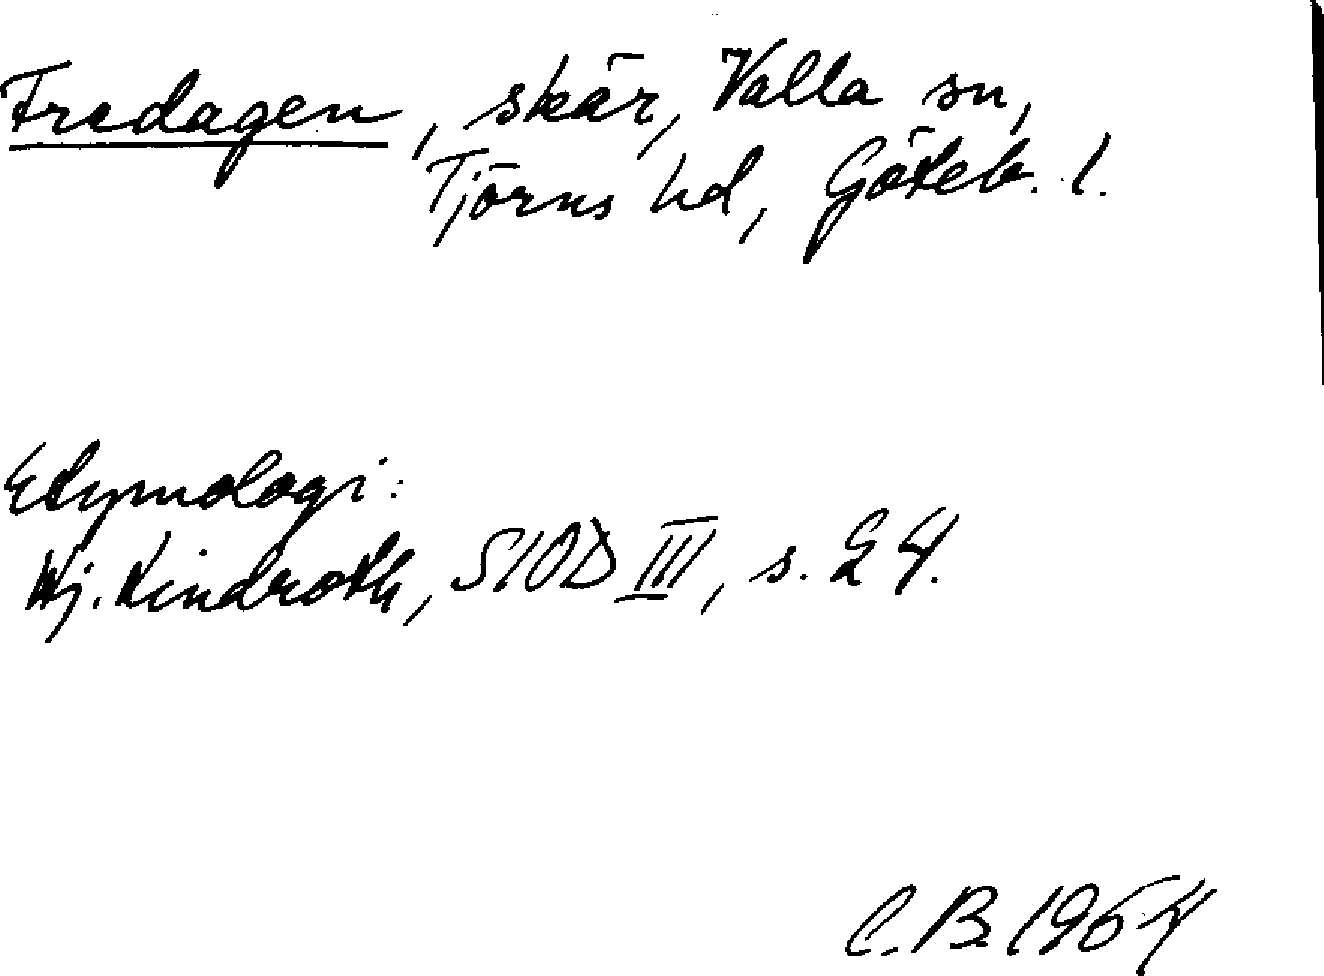 Fredagen, skär, Valla sn,
Tjörns hd, Göteb. l.
Etymologi:
Hj. Lindroth, SIOD III, s. 24.
C.B. 1964